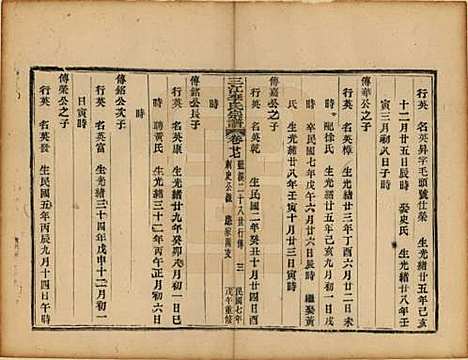 行英 名英昇字毛頭號仕榮 生光緒廿五年己亥
十二月廿五日丑時 娶史氏 生光緒廿八年壬
寅三月初八日子時
傳華公之子
行英 名英樟 生光緒卅三年丁酉六月廿二日未
時 配徐氏 生光緒廿五年己亥九月初一日亥
時 卒民國七年戊午六月廿六日辰時 繼娶黃
氏 生光緒廿八年壬寅十月廿三日寅時
傳嘉公之子
行英 名英乾 生民國二年癸丑十月廿四日午時
三江李氏宗譜
卷廿七
藍縀二十八世行傳 三
刺史公 恩家園支
民國七年
戊午重修
行英 名英康 生光緒廿九年癸卯八月初一日巳
時 聘黃氏 生光緒三十二年丙午正月初六日
時
傳銘公次子
行英 名英富 生光緒三十四年戊申十月初一
日寅時
傳榮公之子
行英 名英發 生民國五年丙辰九月十四日午時